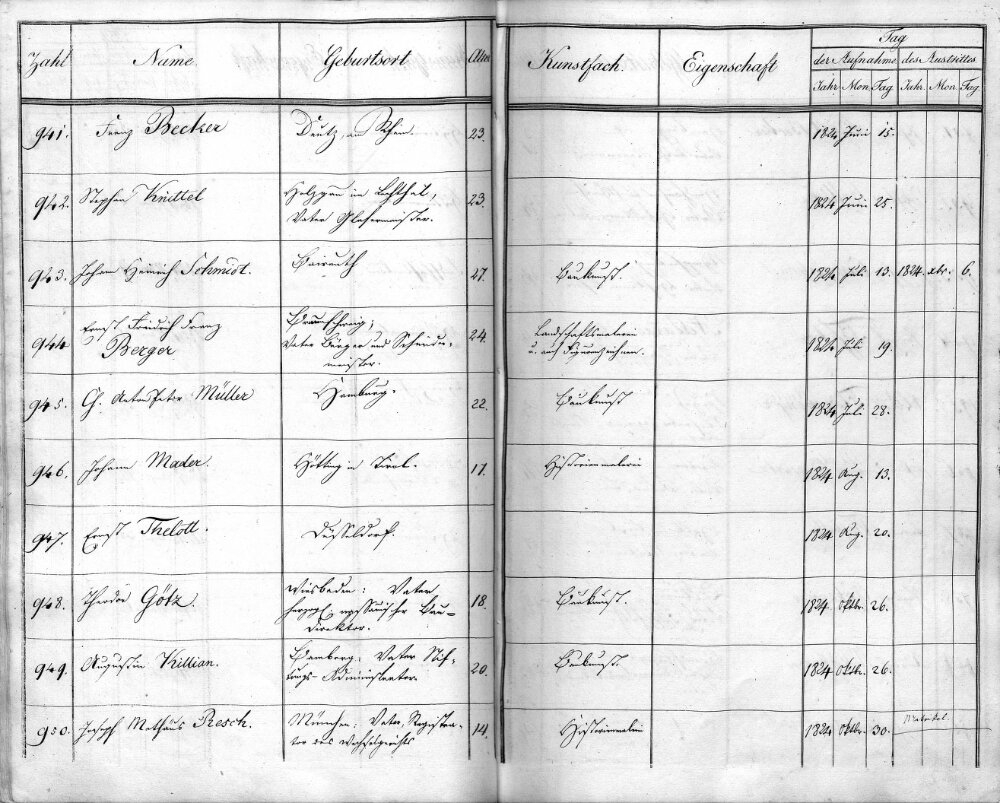 Zahl Name. Geburtsort Alter Kunstfach. Eigenschaft Tag
der Aufnahme des Austrittes
Jahr Mon. Tag Jahr. Mon. Tag
941. Franz Becker Deutz, am Rhein. 23. 1824 Juni 15.
942. Stephan Knittel Holzgau im Lechthal, 23. 1824 Juni 25.
Vater Glasermeister.
943. Johann Heinrich Schmidt. Baireuth 27. Baukunst. 1824 Juli 13. 1824. xbr. 6.
944 Ernst Friedrich Franz Braunschweig; 24. Landschaftsmalerei 1824 Juli 19.
Berger Vater Bürger und Schneider- u. auch Figurenzeichnen.
meister.
945. Ch. Anton Peter Müller Hamburg. 22. Baukunst 1824 Juli 28.
946. Johann Mader. Hötting in Tirol. 17. Historienmalerei 1824 Aug. 13.
947. Ernst Thelott. Düsseldorf. 1824 Aug. 20.
948. Theodor Götz. Wisbaden: Vater 18. Baukunst. 1824. Oktbr. 26.
herzogl. nassauischer Bau-
direktor.
949. Augustin Killian. Bamberg: Vater Stif- 20. Baukunst. 1824 Oktbr. 26.
tungs-Administrator.
950. Joseph Mathäus Resch. München: Vater, Registra- 14. Historienmalerei 1824 Oktbr. 30.
tor des Wechselgerichts